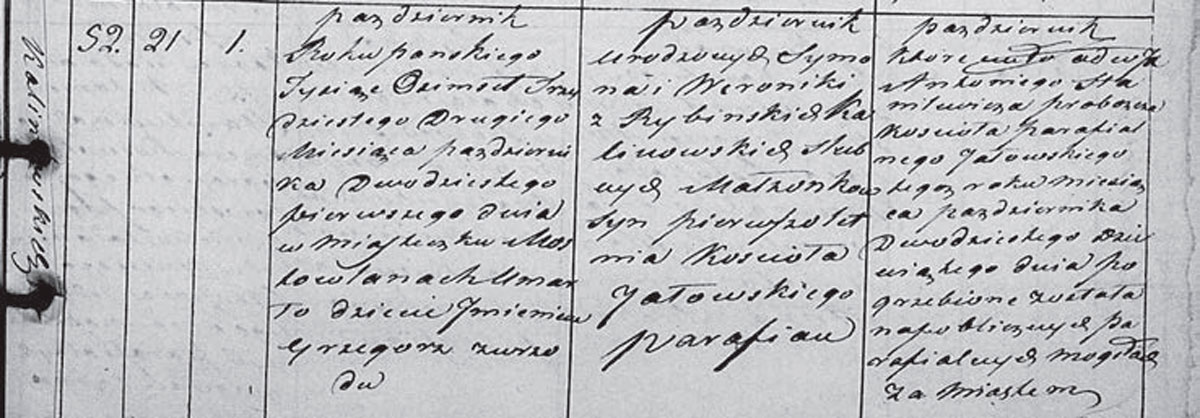 Kalinowskich
52. 21 1.
październik
Roku pańskiego
Tysiąc Ozimset Trzy
dziestego Drugiego
Miesiąca październi
ka Dwodziestego
pierwszego dnia
w miasteczku Mos
towlanach Umar
ło dziecie Jmieniem
Grzegorz zwrzo
du
październik
urodzonych Symo
na i Weroniki
z Rybinskich Ka
linowskich Slub
nych Małżonkow
syn pierwszolet
nia Koscioła
Jałowskiego
parafian
październik
które
Antoniego Sta
niewicza proboszcza
Kosciota parafial
nego Jałowskiego
tegoż roku miesią
ca października
Dwodziestego Dzie
wiątego dnia po
grzebione zostało
na publicznych pa
rafialnych mogiłach
za Miastem